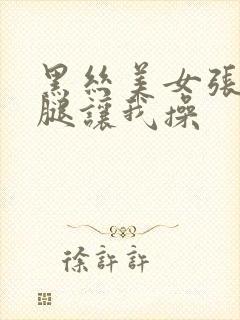 黑丝美女張
腿讓我操
徐許許